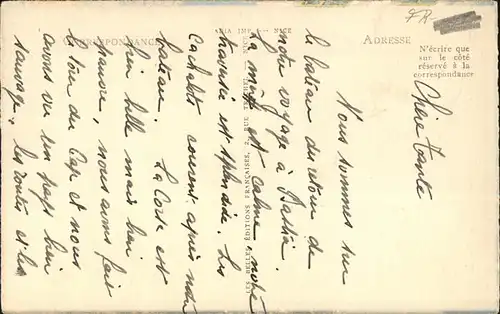 FR-
CORRESPONDANCE
ADRESSE
N'écrire que
sur le côté
réservé à la
correspondance
NICE
LES BELLES ÉDITIONS FRANÇAISES, 2, RUE
Chère tante
Nous sommes sur
le bateau du retour de
notre voyage à Bastia.
La mer est calme, notre
traversée est splendide. Les
cachalots courent après notre
bateau. La Corse est
bien belle mais bien
pauvre, nous avons fait
le tour du Cap et nous
avons vu un pays bien
sauvage, les routes et les